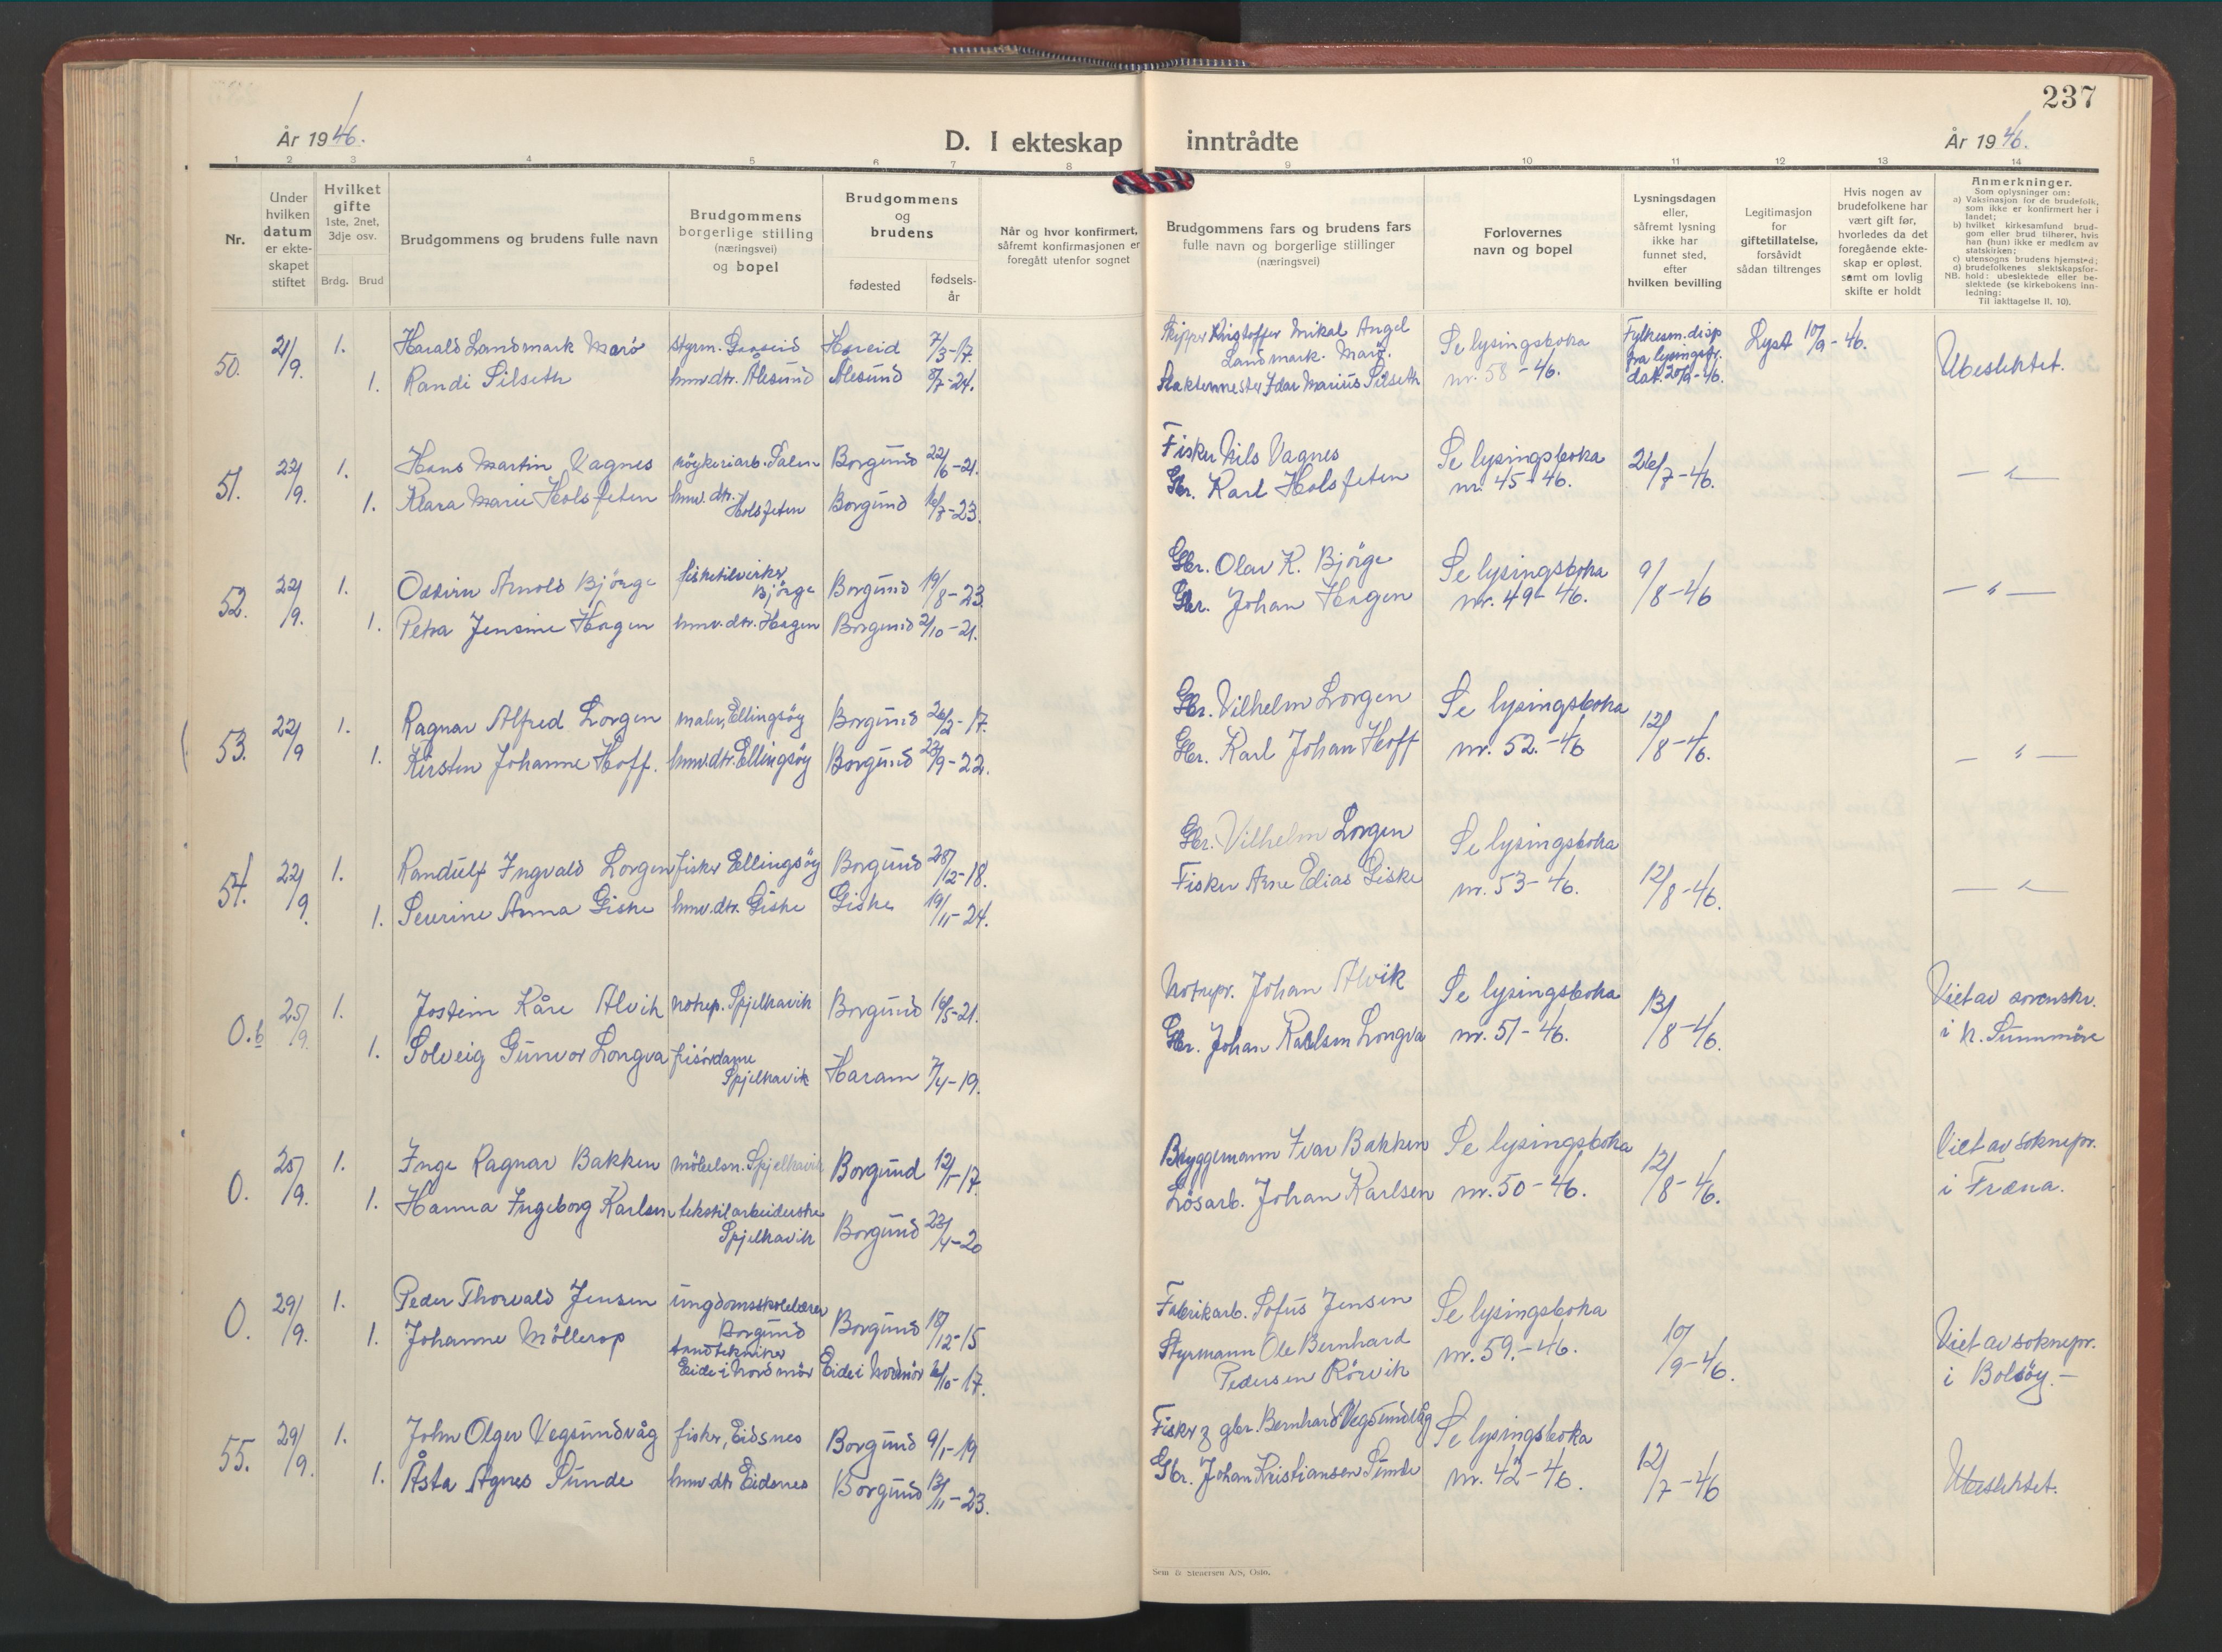 237
År 1946.
D. I ekteskap inntrådte
År 1946.
1 2 3 4 5 6 7 8 9 10 11 12 13 14
Nr.
Under hvilken datum er ekteskapet stiftet
Hvilket gifte
1ste, 2net, 3dje osv.
Brdg. Brud
Brudgommens og brudens fulle navn
Brudgommens borgerlige stilling (næringsvei) og bopel
Brudgommens og brudens
fødested
fødselsår
Når og hvor konfirmert, såfremt konfirmasjonen er foregått utenfor sognet
Brudgommens fars og brudens fars fulle navn og borgerlige stillinger (næringsvei)
Forlovernes navn og bopel
Lysningsdagen eller, såfremt lysning ikke har funnet sted, efter hvilken bevilling
Legitimasjon for giftetillatelse, forsåvidt sådan tiltrenges
Hvis nogen av brudefolkene har vært gift før, hvorledes da det foregående ekteskap er opløst, samt om lovlig skifte er holdt
Anmerkninger.
Som oplysninger om:
a) Vaksinasjon for de brudefolk, som ikke er konfirmert her i landet;
b) hvilket kirkesamfund brudgom eller brud tilhører, hvis han (hun) ikke er medlem av statskirken;
c) utensogns brudens hjemsted;
d) brudefolkenes slektskapsforhold: ubeslektede eller beslektede (se kirkebokens innledning:
NB. Til iakttagelse II. 10).
50. 21/9. 1. Harald Landmark Marö styrm. Hareid 7/3-17. Skipper Kristoffer Mikal Angel Landmark Marö. Se lysingsboka nr. 58-46. Fylkesm. disp fra lysingstr. dat. 20/9-46. Lyst 10/9-46. Ubeslektet.
1. Randi Silseth hmv.dtr. Ålesund Ålesund 8/7-24. Idar Marius Silseth
51. 22/9. 1. Hans Martin Vagnes röykeriarb. Borgund 22/6-21. Fisker Nils Vagnes Se lysingsboka nr. 45-46. 26/7-46. — " —
1. Klara Marie Holsfeten hmv.dtr. Holsfeten Borgund 16/7-23. Gbr. Karl Holsfeten
52. 22/9. 1. Arnold Björge fisketilvirker Björge Borgund 19/8-23. Gbr. Olav K. Björge Se lysingsboka nr. 49-46. 9/8-46 — " —
1. Petra Jensine Hagen hmv.dtr. Hagen Borgund 2/10-21. Gbr. Johan Hagen
53. 22/9 1. Ragnar Alfred Lorgen maler, Ellingsöy Borgund 26/2-17. Gbr. Vilhelm Lorgen Se lysingsboka nr. 52.-46 12/8-46. — " —
1. Kirsten Johanne Hoff. hmv.dtr. Ellingsöy Borgund 23/9-22. Gbr. Karl Johan Hoff
54. 22/9. 1. Randulf Ingvald Lorgen fisker Ellingsöy Borgund 28/12-18. Gbr. Vilhelm Lorgen Se lysingsboka nr. 53-46. 12/8-46. — " —
1. Severine Anna Giske hmv.dtr. Giske Giske 19/11-24. Fisker Arne Elias Giske
0.b 25/9. 1. Jostein Kåre Alvik notrep. Spjelkavik Borgund 16/5-21. Notrepr. Johan Alvik Se lysingsboka nr. 51-46. 13/8-46. Viet av sorenskr. i N. Sunnmöre
1. Solveig Gunvor Longva frisördame Spjelkavik Haram 7/4-19. Gbr. Johan Karlsen Longva
0. 25/9. 1. Inge Ragnar Bakken möbelsn. Spjelkavik Borgund 12/1-17. Bryggemann Ivar Bakken Se lysingsboka nr. 50-46. 12/8-46. Viet av soknepr. i Fræna.
1. Hanna Ingeborg Karlsen tekstilarbeiderske Spjelkavik Borgund 23/4-20 Lösarb. Johan Karlsen
0. 29/9. 1. Peder Thorvald Jensen ungdomsskolelærer Borgund Borgund 18/12-15 Fabrikarb. Sofus Jensen Se lysingsboka nr. 59.-46. 10/9-46. Viet av soknepr. i Bolsöy.—
1. Johanne Möllerop tandtekniker Eide i Nordmör Eide i Nordmör 6/10-17. Styrmann Ole Bernhard Pedersen Rörvik
55. 29/9. 1. John Olger Vegsundvåg fisker, Eidsnes Borgund 9/1-19 Fisker & gbr. Bernhard Vegsundvåg Se lysingsboka nr. 42-46. 12/7-46 Ubeslektet.
1. Åsta Agnes Sunde hmv.dtr. Eidsnes Borgund 13/11-23. Gbr. Johan Kristiansen Sunde
Sem & Stenersen A/S, Oslo.